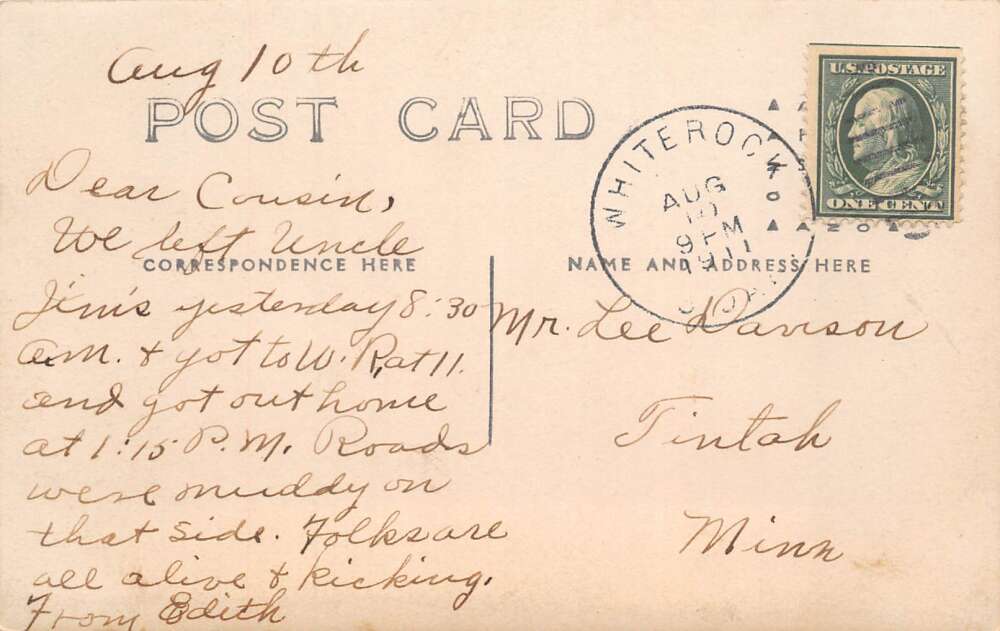 Aug 10th
POST CARD
Dear Cousin,
We left Uncle
CORRESPONDENCE HERE
Jim's yesterday 8:30
a.m. & got to W. R, at 11.
and got out home
at 1:15 P.M. Roads
were muddy on
that side. Folks are
all alive & kicking.
From Edith
WHITEROCK
AUG
10
9 PM
1911
U.S. POSTAGE
ONE CENT
NAME AND ADDRESS HERE
Mr. Lee Davison
Tintah
Minn